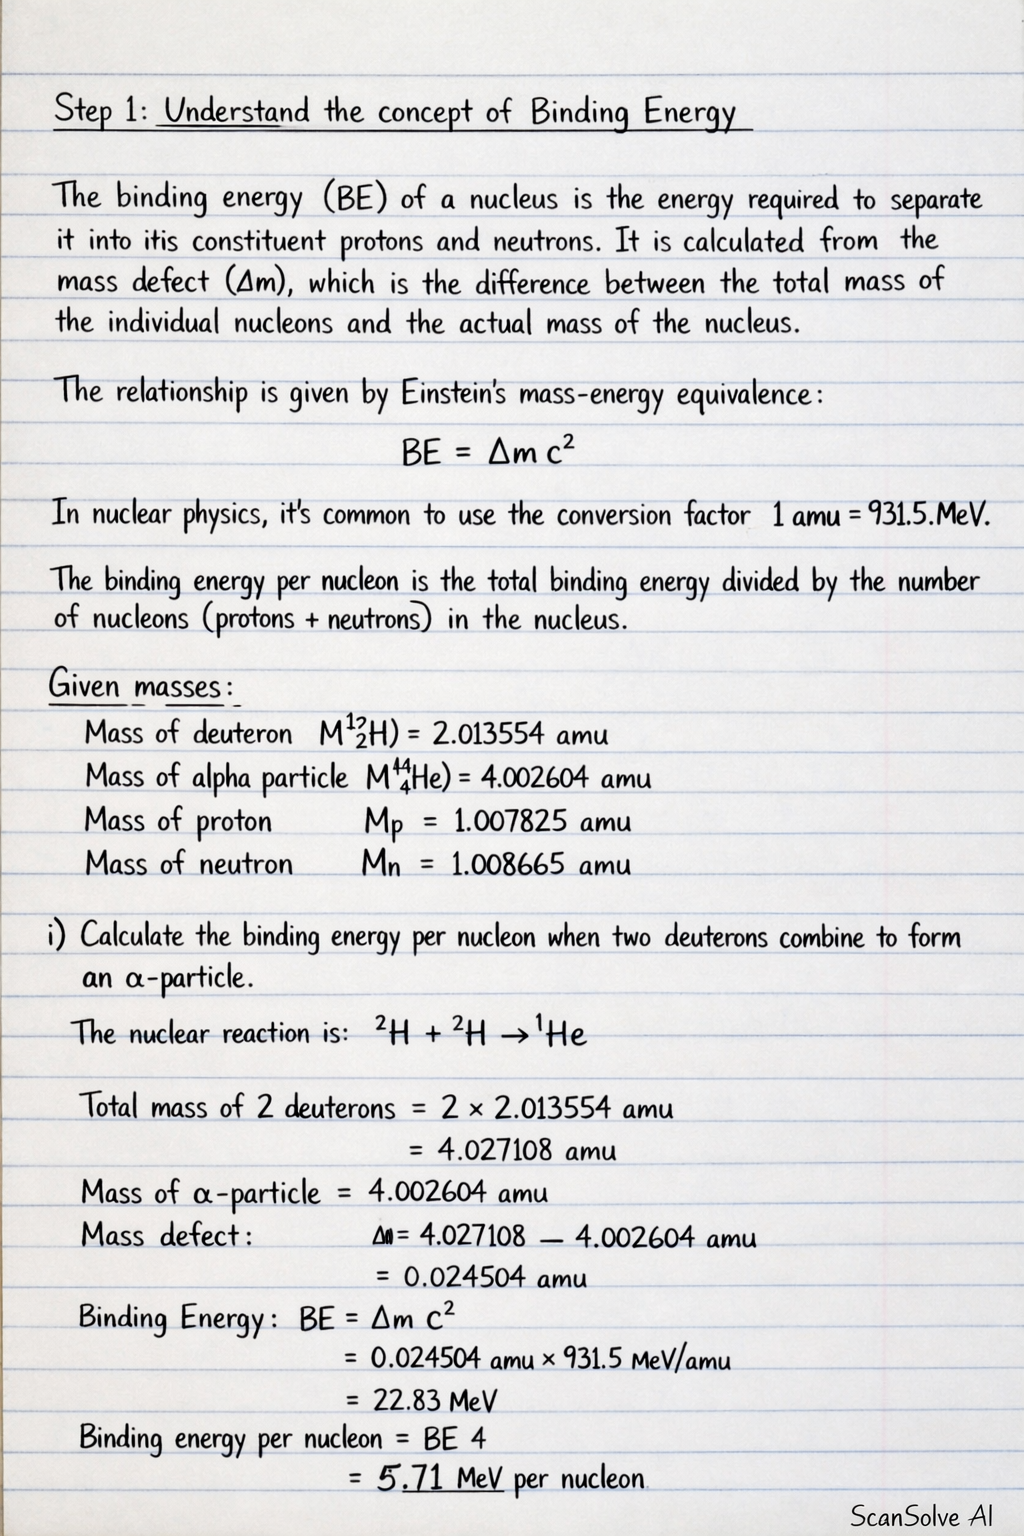 Step 1: Understand the concept of Binding Energy
The binding energy (BE) of a nucleus is the energy required to separate
it into itis constituent protons and neutrons. It is calculated from the
mass defect (Δm), which is the difference between the total mass of
the individual nucleons and the actual mass of the nucleus.
The relationship is given by Einstein's mass-energy equivalence:
BE = Δm c²
In nuclear physics, it's common to use the conversion factor 1 amu = 931.5.MeV.
The binding energy per nucleon is the total binding energy divided by the number
of nucleons (protons + neutrons) in the nucleus.
Given masses:
Mass of deuteron M¹²₂H) = 2.013554 amu
Mass of alpha particle M⁴⁴₄He) = 4.002604 amu
Mass of proton Mp = 1.007825 amu
Mass of neutron Mn = 1.008665 amu
i) Calculate the binding energy per nucleon when two deuterons combine to form
an α-particle.
The nuclear reaction is: ²H + ²H → ¹He
Total mass of 2 deuterons = 2 × 2.013554 amu
= 4.027108 amu
Mass of α-particle = 4.002604 amu
Mass defect: = 4.027108 — 4.002604 amu
= 0.024504 amu
Binding Energy: BE = Δm c²
= 0.024504 amu × 931.5 MeV/amu
= 22.83 MeV
Binding energy per nucleon = BE 4
= 5.71 MeV per nucleon
ScanSolve AI